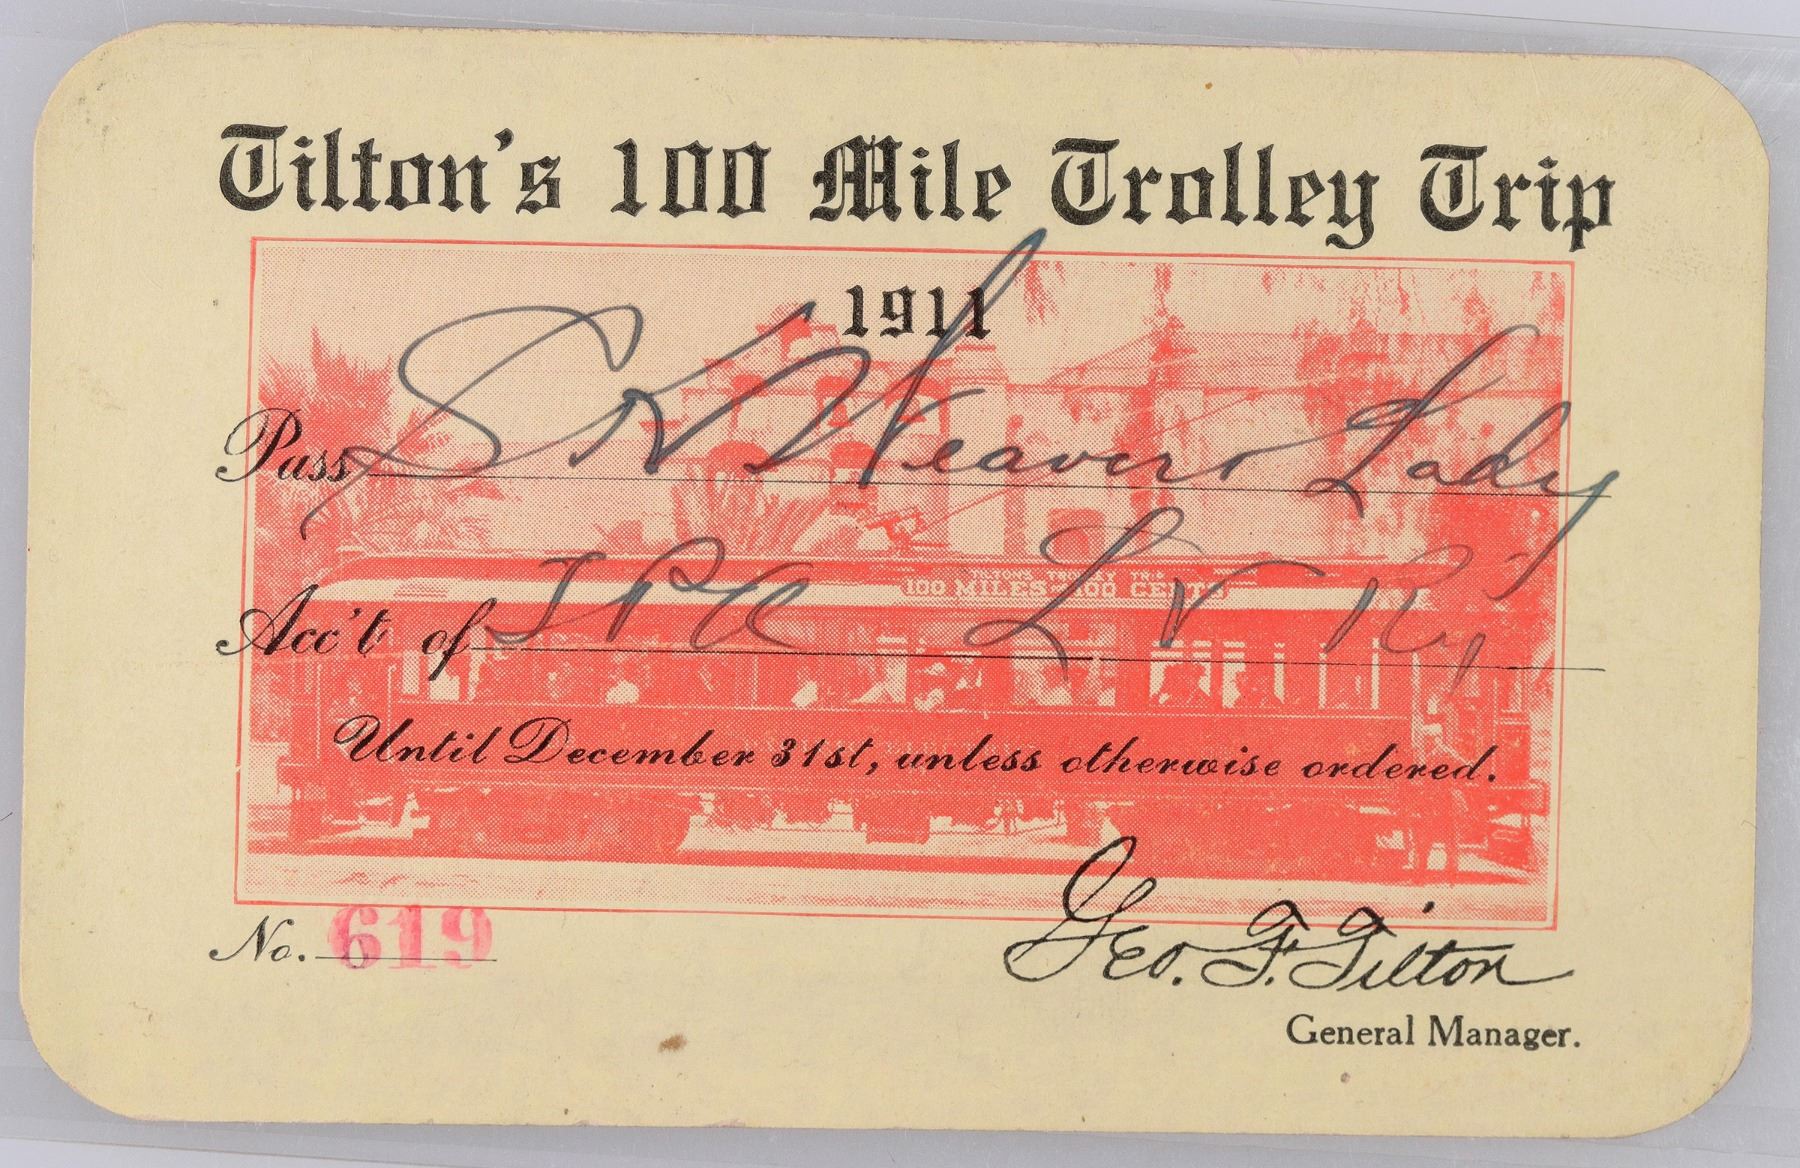 Tilton's 100 Mile Trolley Trip
1911
Pass Lady
TILTON'S TROLLEY TRIP
100 MILES 100 CENTS
Acc't of
Until December 31st, unless otherwise ordered.
No. 619
Geo. F. Tilton
General Manager.